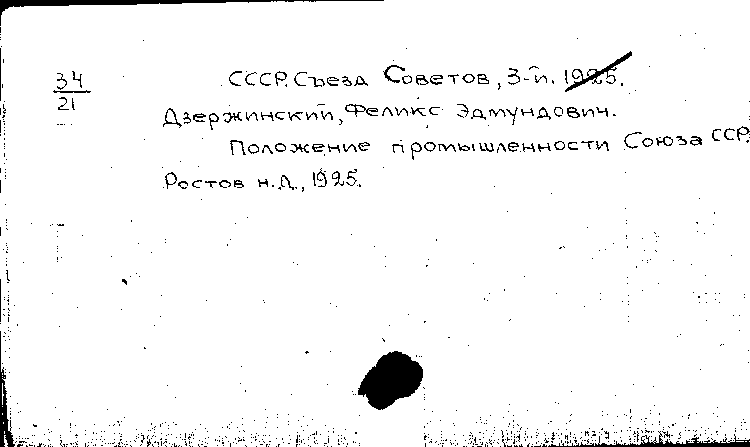 34
21
СССР. Съезд Советов, 3-й. 1925.
Дзержинский, Феликс Эдмундович.
Положение промышленности Союза ССР.
Ростов н.Д., 1925.